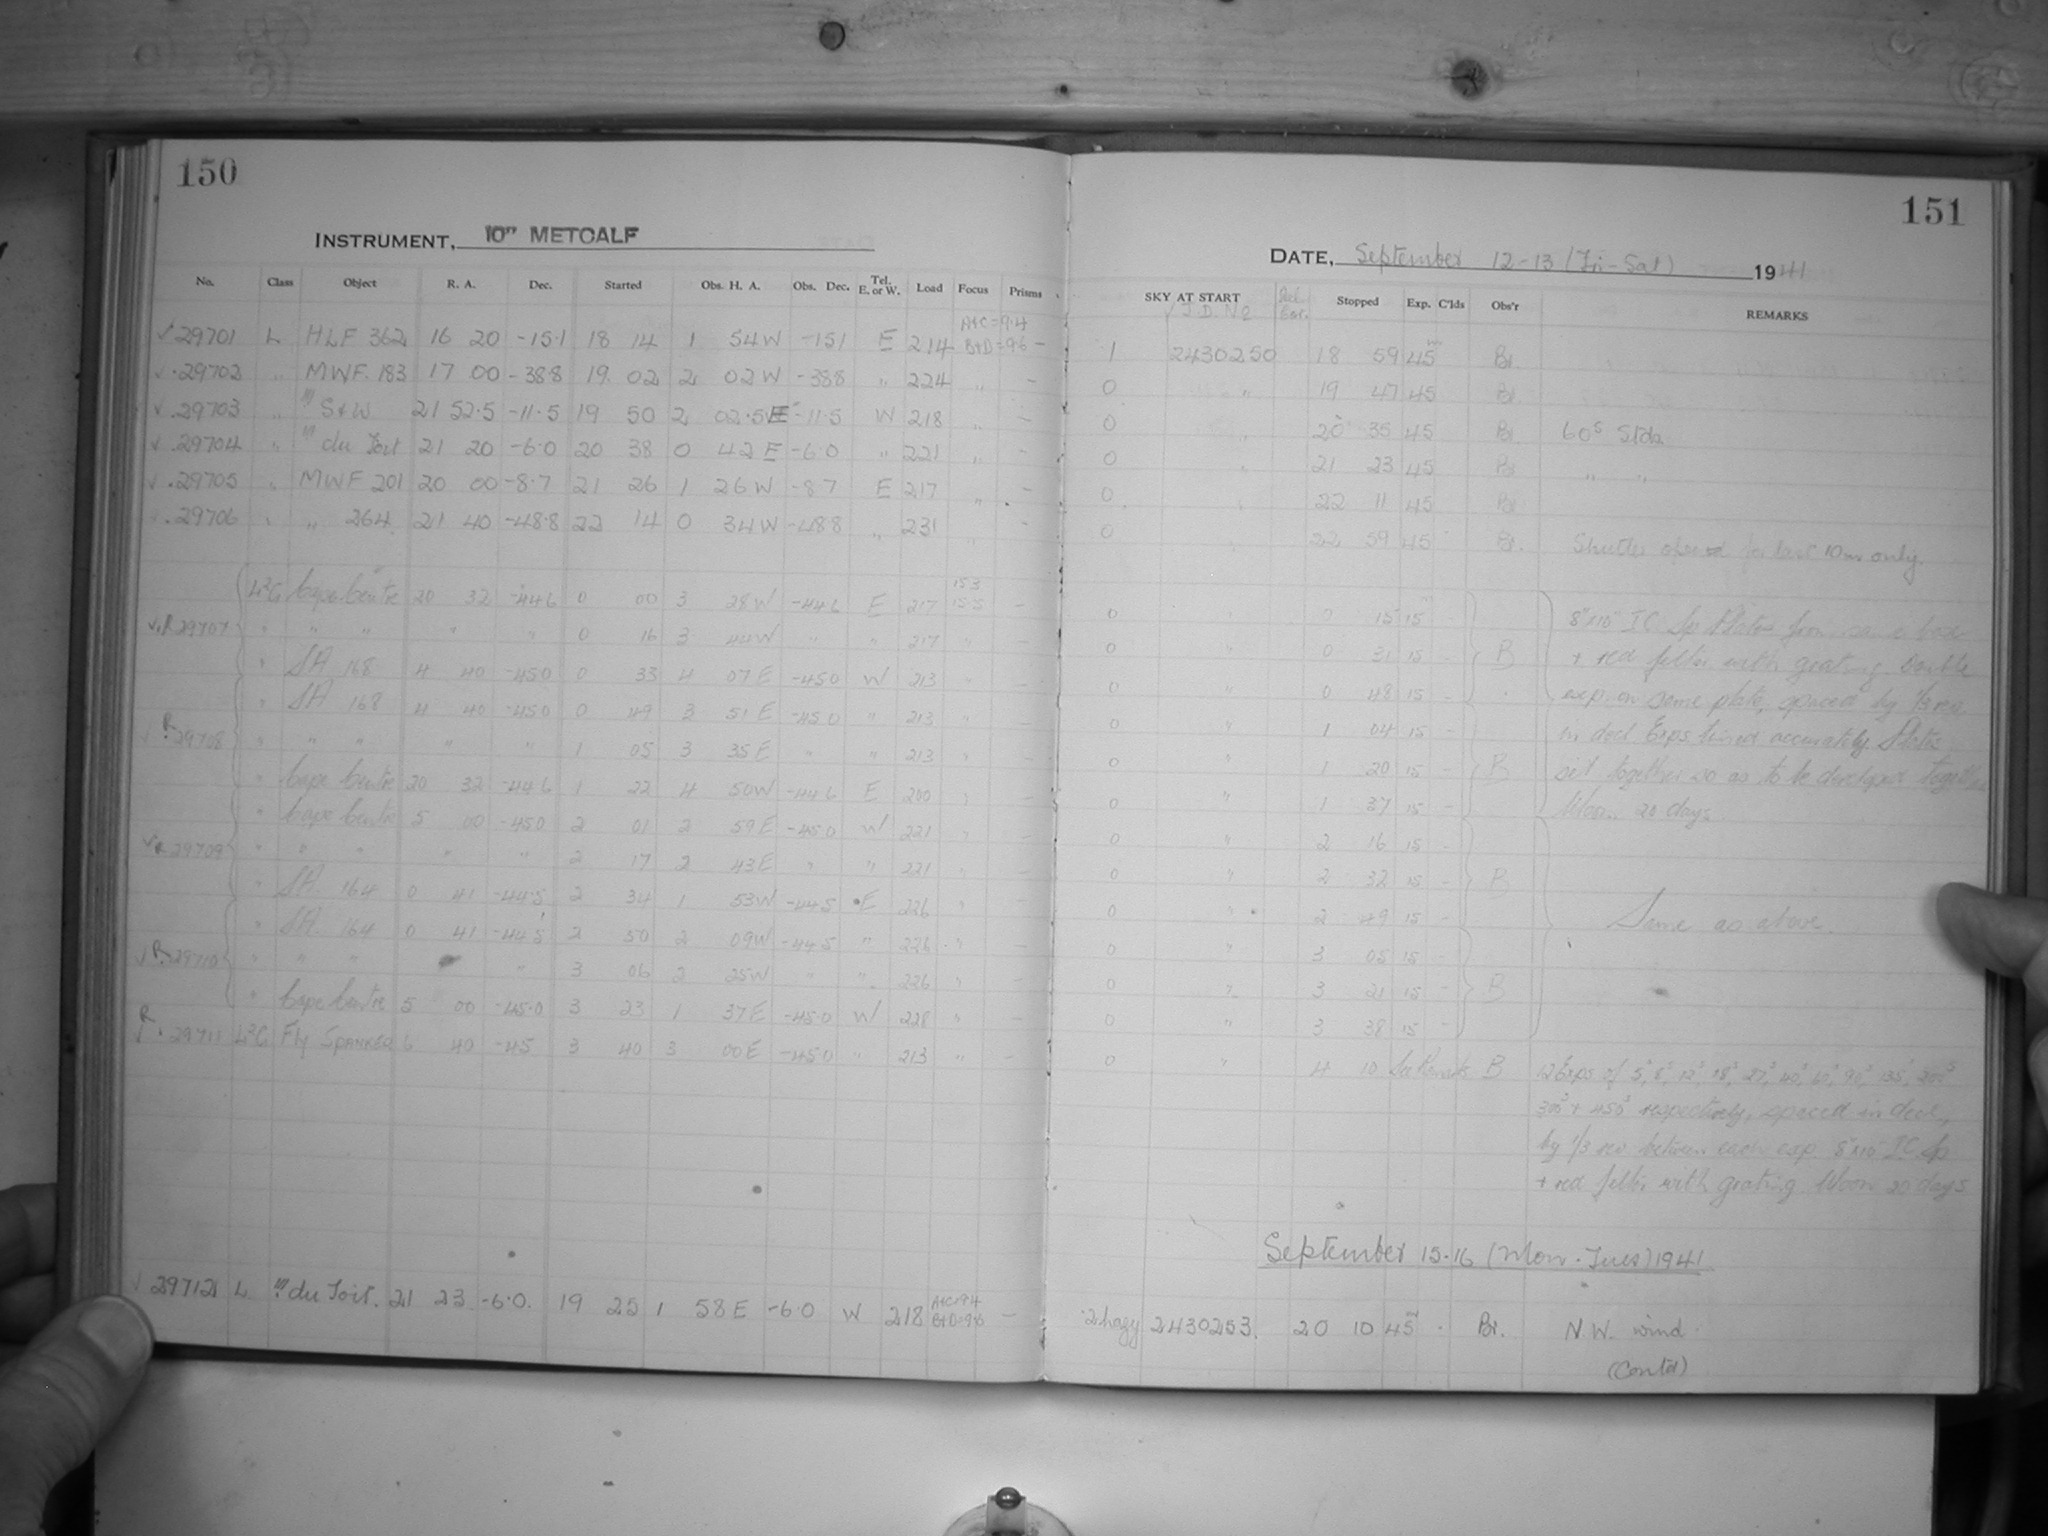 150
INSTRUMENT, 10" METCALF
No. Class Object R. A. Dec. Started Obs. H. A. Obs. Dec. Tel. E. or W. Load Focus Prisms
29701 L HLF 362 16 20 -15.1 18 14 1 54W -15.1 E 214 A+C=9.4 B+D=9.6 -
29702 " MWF. 183 17 00 -38.8 19 02 2 02W -38.8 " 224 " -
29703 " !!! S&W 21 52.5 -11.5 19 50 2 02.5E -11.5 W 218 " -
29704 " !!! du Toit 21 20 -6.0 20 38 0 42E -6.0 " 221 " -
29705 " MWF 201 20 00 -8.7 21 26 1 26W -8.7 E 217 " -
29706 " " 264 21 40 -48.8 22 14 0 34W -48.8 " 231 " -
Cape Centre 20 32 -44.6 0 00 3 28W -44.6 E 217 15.3 15.5 -
R 29707 " " " " " 0 16 3 44W " " 217 " -
" SA 168 4 40 -45.0 0 33 4 07E -45.0 W 213 " -
" SA 168 4 40 -45.0 0 49 3 51E -45.0 " 213 " -
R 29708 " " " " " 1 05 3 35E " " 213 " -
" Cape Centre 20 32 -44.6 1 22 4 50W -44.6 E 200 " -
" Cape Centre 5 00 -45.0 2 01 2 59E -45.0 W 221 " -
R 29709 " " " " " 2 17 2 43E " " 221 " -
" SA 164 0 41 -44.5 2 34 1 53W -44.5 E 226 " -
" SA 164 0 41 -44.5 2 50 2 09W -44.5 " 226 " -
R 29710 " " " " 3 06 2 25W " " 226 " -
" Cape Centre 5 00 -45.0 3 23 1 37E -45.0 W 228 " -
R 29711 Fly Spanker 6 40 -45 3 40 3 00E -45.0 " 213 " -
29712 L !!! du Toit. 21 23 -6.0. 19 25 1 58E -6.0 W 218 A+C=9.4 B+D=9.6 -
151
DATE, September 12-13 (Fri-Sat) 1941
SKY AT START J.D. No Stopped Exp. C'lds Obs'r REMARKS
1 2430250 18 59 45m Br.
0 " 19 47 45 Br.
0 " 20 35 45 Br 60s Stds.
0 " 21 23 45 Br. " "
0 " 22 11 45 Br.
0 " 22 59 45 Br. Shutter opened for last 10m only.
0 " 0 15 15 8"x10" IC Sp Plates from same box
0 " 0 31 15 - B + red filter with grating Double
0 " 0 48 15 - exp on same plate, spaced by 1/3 rev
0 " 1 04 15 - in decl. Exps timed accurately. Plates
0 " 1 20 15 - B set together so as to be developed together
0 " 1 37 15 - Moon 20 days.
0 " 2 16 15 -
0 " 2 32 15 - B
0 " 2 49 15 - Same as above.
0 " 3 05 15 -
0 " 3 21 15 - B
0 " 3 38 15 -
0 " 4 10 See Remarks B 12 Exps of 5s, 8s, 12s, 18s, 27s, 40s, 60s, 90s, 135s, 200s
300s + 450s respectively, spaced in decl,
by 1/3 rev between each exp. 8"x10" IC Sp
+ red filter with grating. Moon 20 days
September 15-16 (Mon-Tues) 1941
2 hazy 2430253. 20 10 45m Br. N.W. wind.
(Contd)